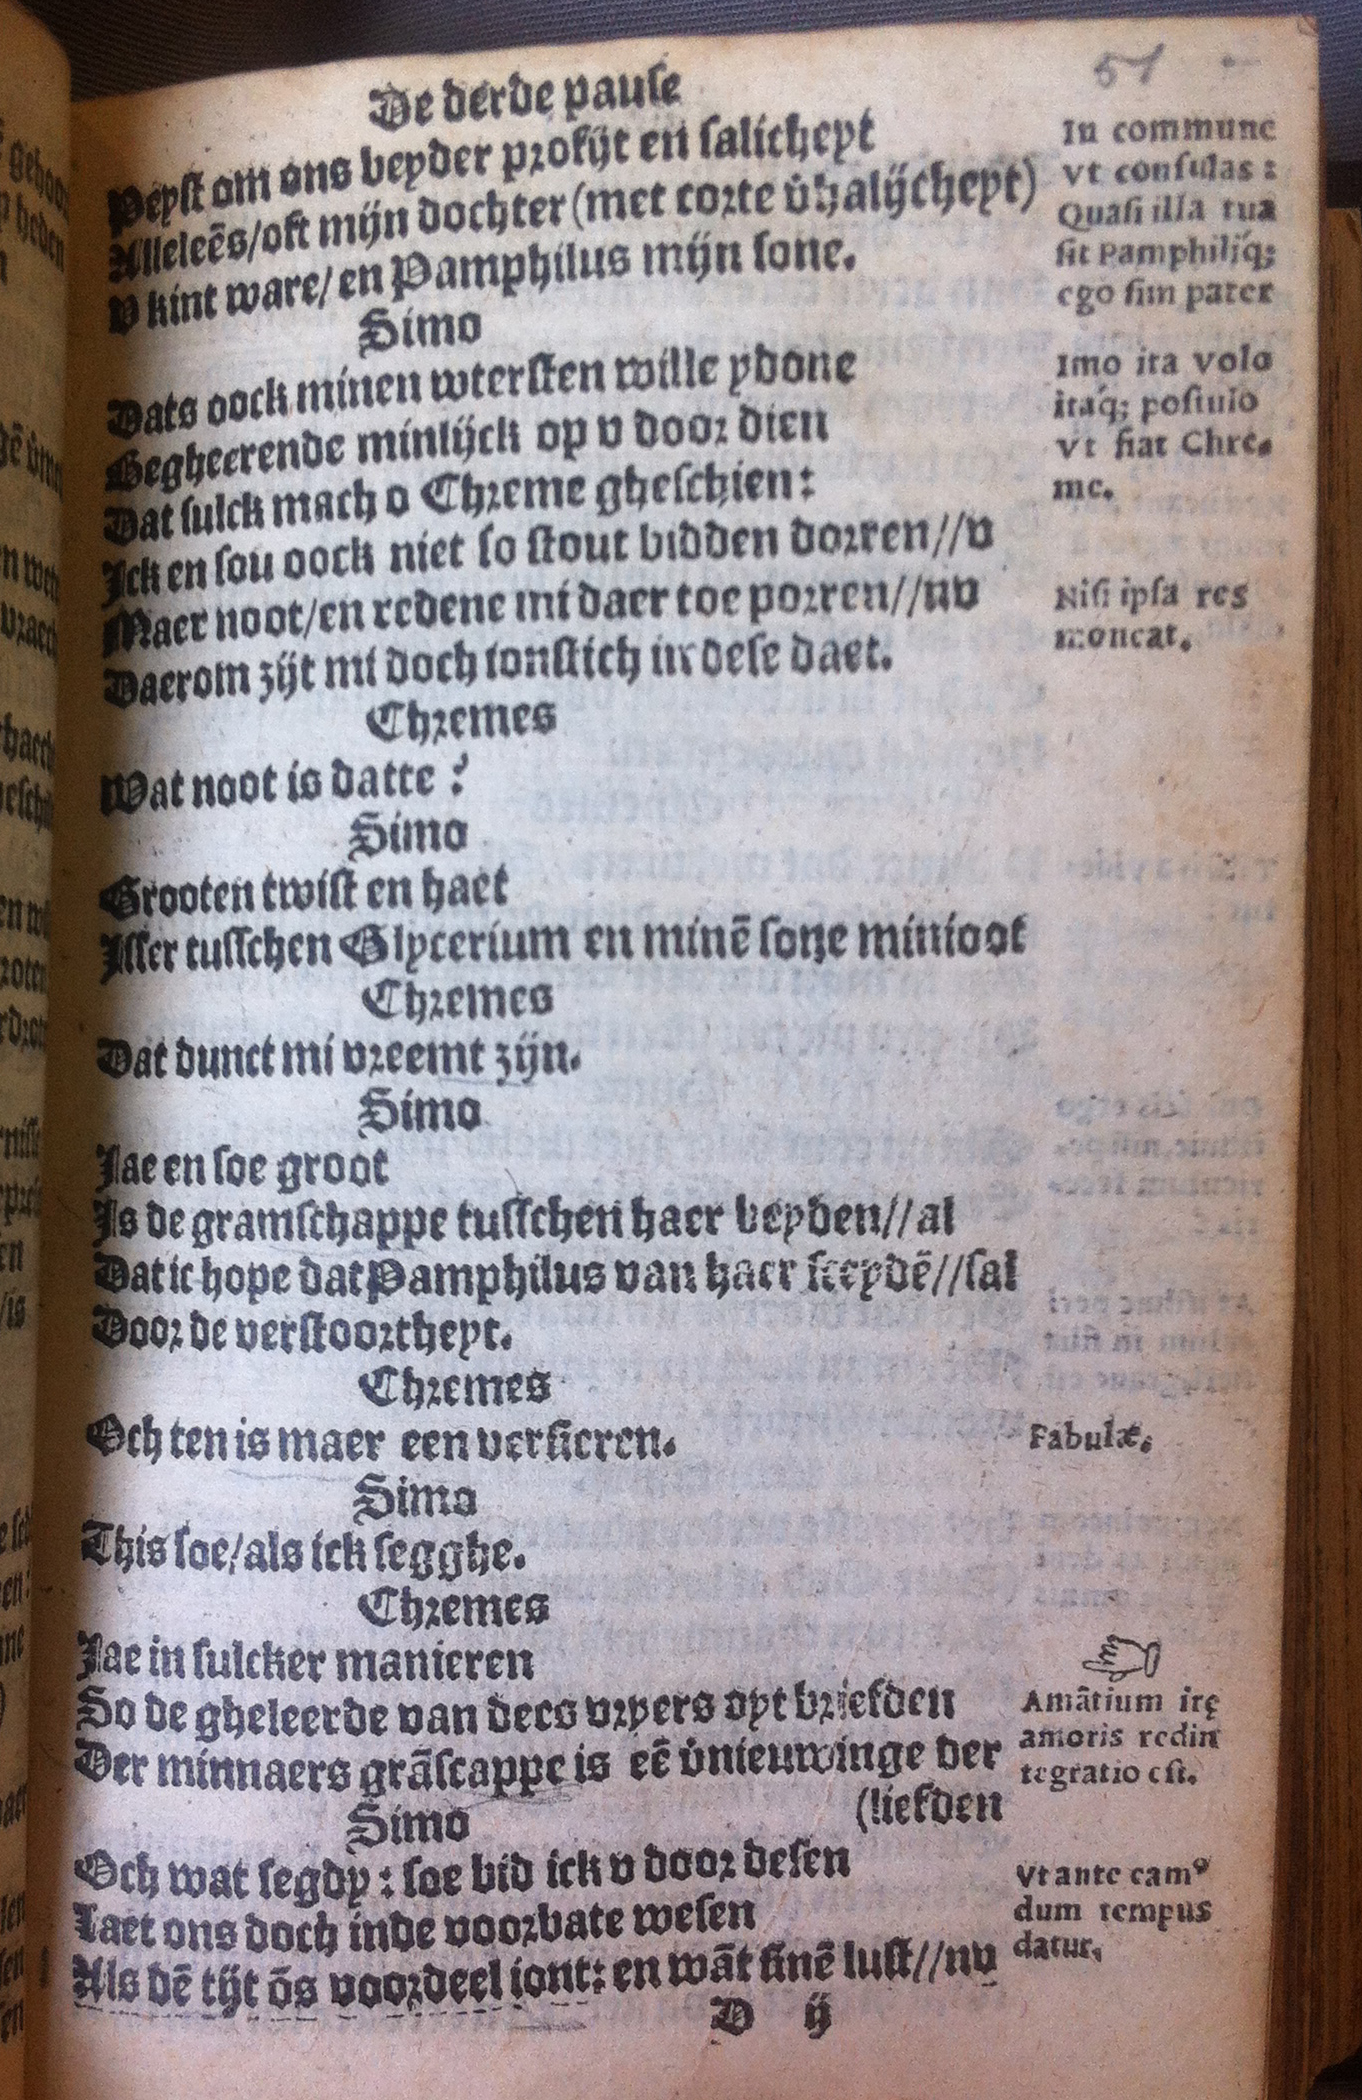 51
De derde pause
Peyst om ons beyder profijt en salicheyt
Alleleēs/oft mijn dochter (met corte v̊halijcheyt)
V kint ware/ en Pamphilus mijn sone.
In commune
vt consulas:
Quasi illa tua
sit Pamphiliq́;
ego sim pater
Simo
Dats oock minen wtersten wille ydone
Begheerende minlijck op v door dien
Dat sulck mach o Chreme gheschien:
Ick en sou oock niet so stout bidden dorren//v
Maer noot/en redene mi daer toe porren//nv
Daerom zijt mi doch ionstich in dese daet.
Imo ita volo
itaq́; postulo
vt fiat Chre-
me.
Nisi ipsa res
moneat.
Chremes
Wat noot is datte?
Simo
Grooten twist en haet
Isser tusschen Glycerium en minē sone minioot
Chremes
Dat dunct mi vreemt zijn.
Simo
Jae en soe groot
Is de gramschappe tusschen haer beyden//al
Dat ic hope dat Pamphilus van haer sceydē//sal
Door de verstoortheyt.
Chremes
Och ten is maer een versieren.
Fabulæ.
Simo
This soe/als ick segghe.
Chremes
Jae in sulcker manieren
So de gheleerde van decs vryers vyt briefden
Der minnaers grāscappe is eē v̊nieuwinge der
(liefden
Amātium irę
amoris redin
tegratio est.
Simo
Och wat segdy: soe bid ick v door desen
Laet ons doch inde voorbate wesen
Als dē tijt ōs voordeel iont: en wāt sinē lust//nv
Vt ante eamꝰ
dum tempus
datur.
D ij